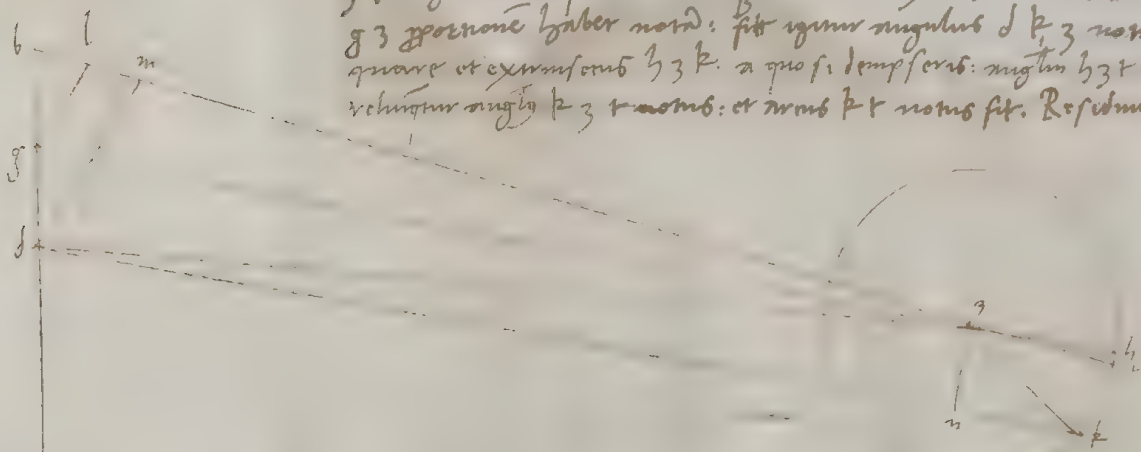 g z proportionē habet notā: fiet igitur angulus d k z not
quare et extrinsecus h z k. a quo si dempseris: angłm h z t
relinqtur angłs k z t notus: et arcus k t notus fit. Residuu
b l
m
g
d
z
h
n
k